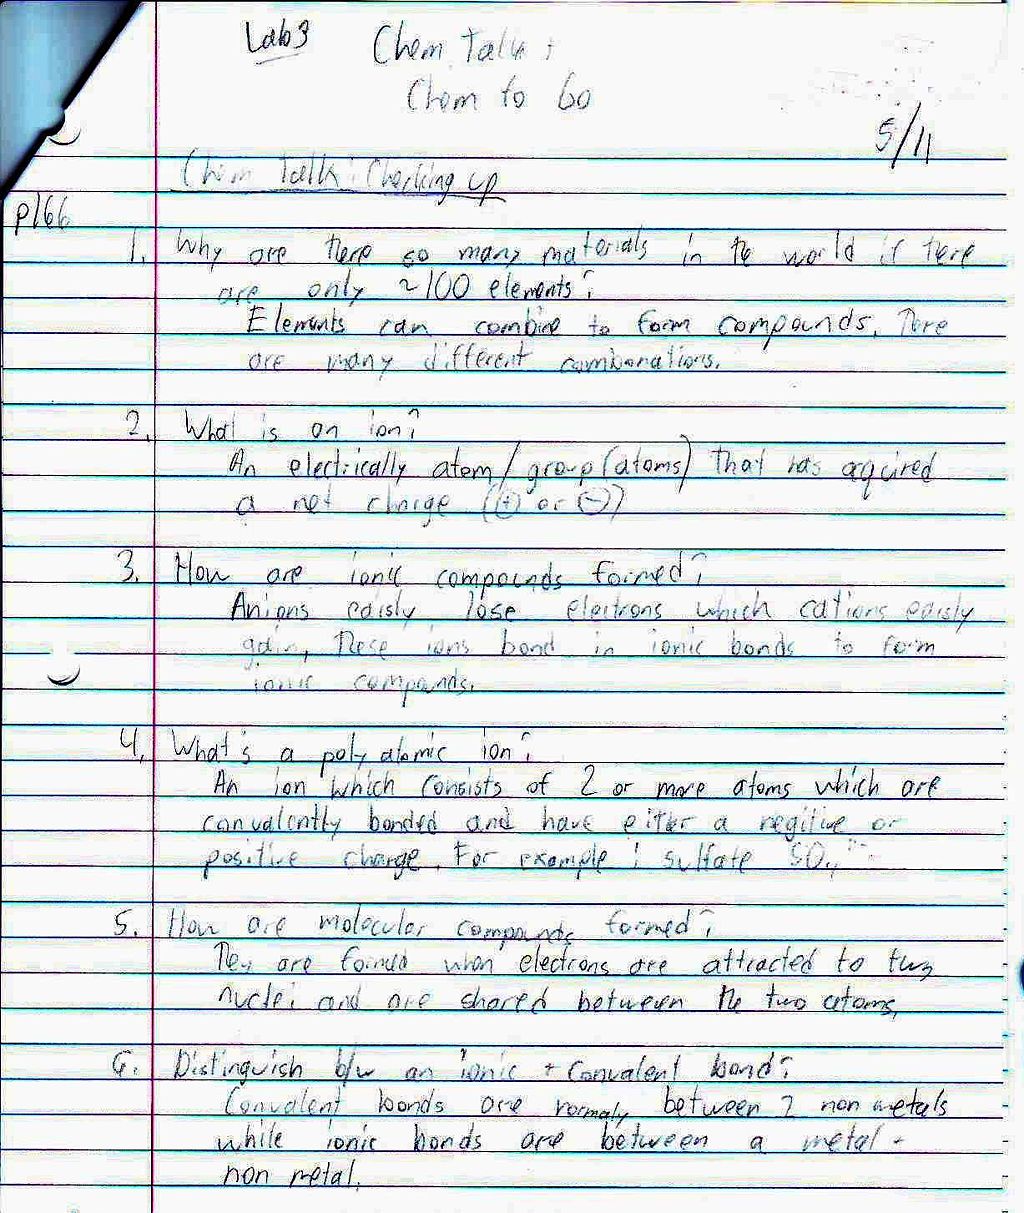 Lab 3 Chem Talk +
Chem to Go
5/11
Chem Talk: Checking up
p166
1. Why are there so many materials in the world if there
are only ~100 elements?
Elements can combine to form compounds. There
are many different combonations.
2. What is an ion?
An electrically atom/group(atoms) that has aquired
a net charge (⊕ or ⊖)
3. How are ionic compounds formed?
Anions eaisly lose electrons which cations eaisly
gain, These ions bond in ionic bonds to form
ionic compounds.
4. What's a poly atomic ion?
An ion which consists of 2 or more atoms which are
convalently bonded and have either a negitive or
positive charge. For example: sulfate
5. How are molecular compounds formed?
They are formed when electrons are attracted to two
nuclei and are shared between the two atoms.
6. Distinguish b/w an ionic + Convalent bond?
Convalent bonds are normaly between 2 non metals
while ionic bonds are between a metal +
non metal.